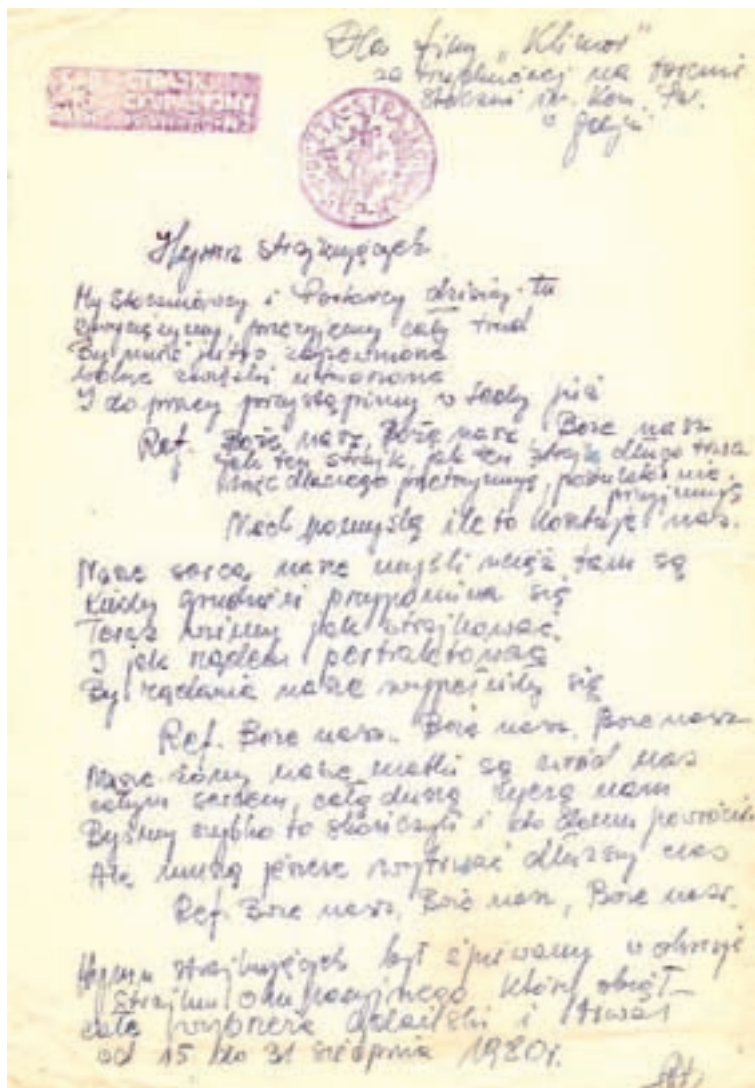 Dla firmy „Klimor”
na terenie
Stoczni im. Kom. Par.
w Gdyni
STRAJK
OKUPACYJNY
Hymn strajkujących
My stoczniowcy i Portowcy dzisiaj tu
zwyciężymy, przeżyjemy cały trud
By mieć jutro zapewnione
wolne związki utworzone
I do pracy przystąpimy w tedy już
Ref. Boże nasz, Boże nasz Boże nasz
jak ten strajk, jak ten strajk długo trwa
więc dlaczego postulatów nie
przyjmują
Niech pomyślą ile to kosztuje nas.
Nasze serca, nasze myśli wciąż tam są
Kiedy grudzień przypomina się
Teraz wiemy jak strajkować
I jak rządem pertraktować
By żądania nasze wypełniły się
Ref. Boże nasz. Boże nasz. Boże nasz
Nasze żony nasze matki są wśród nas
całym sercem, całą duszą życzą nam
Byśmy szybko to skończyli i do domu powrócili
Ale muszą jeszcze wytrwać dłuższy czas
Ref. Boże nasz, Boże nasz, Boże nasz.
Hymn strajkujących był śpiewany w okresie
Strajku okupacyjnego który objął
całe wybrzeże Gdański i trwał
od 15 do 31 sierpnia 1980r.